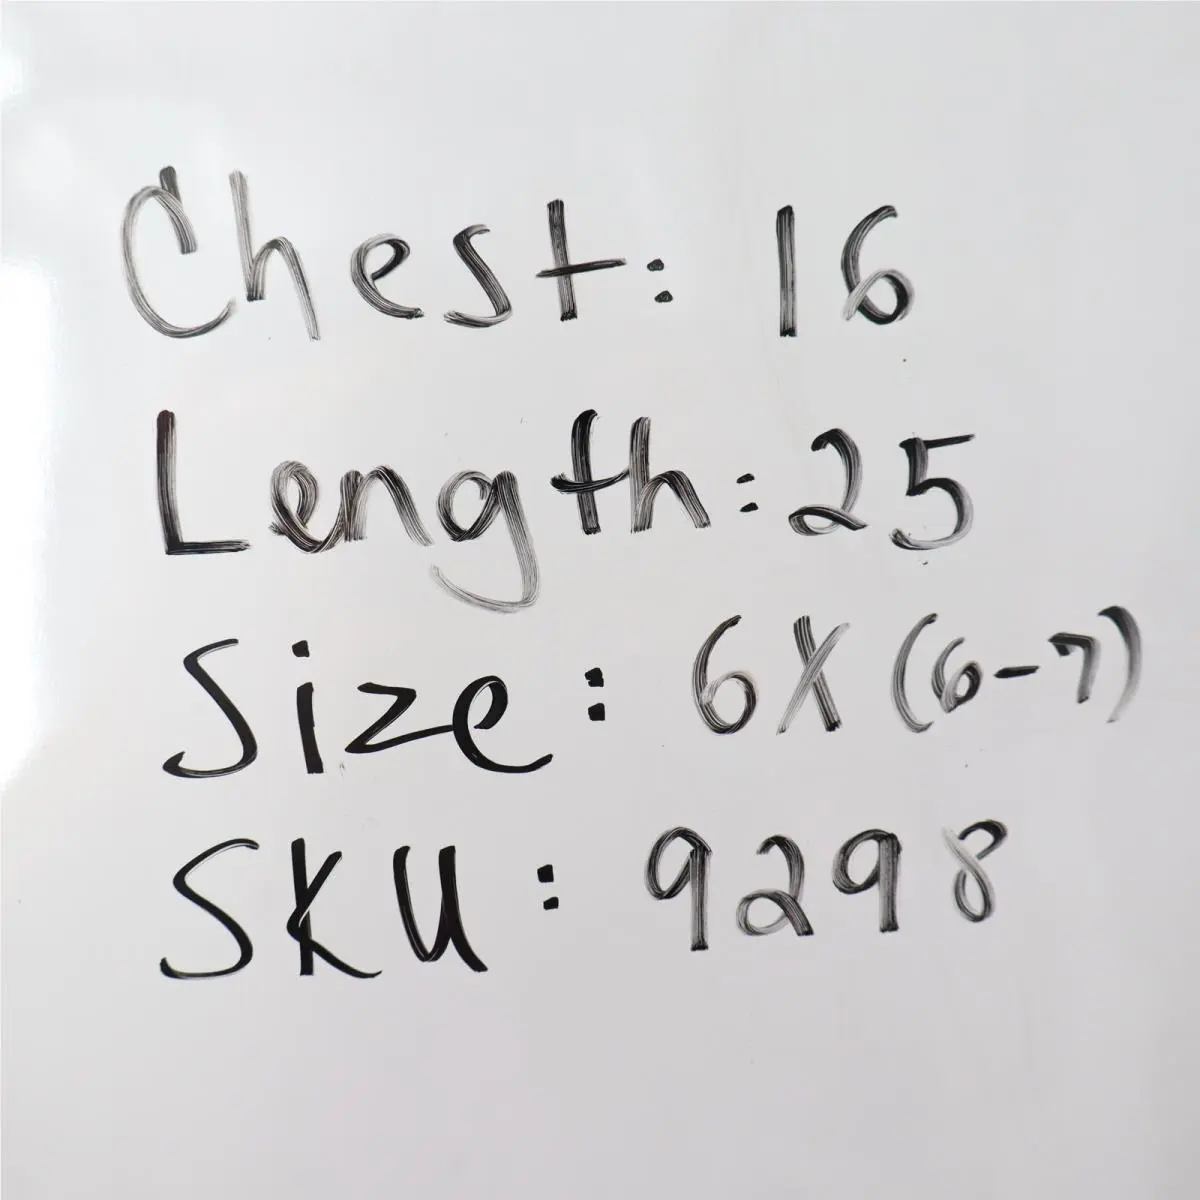 Chest: 16
Length: 25
Size: 6X (6-7)
SKU: 9298